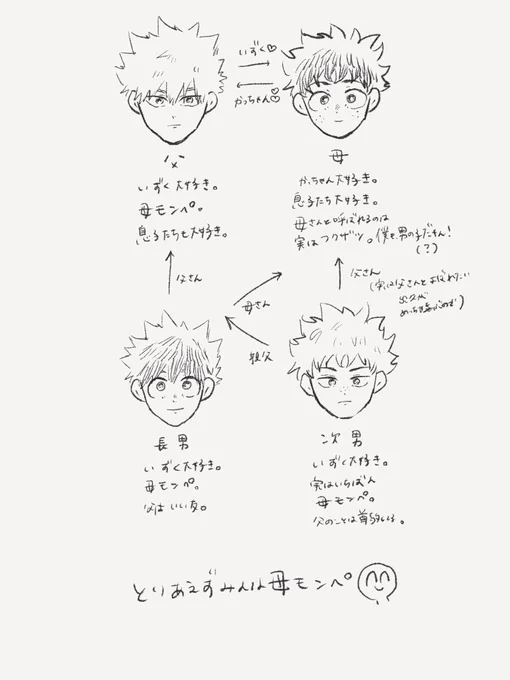 いずく♡
かっちゃん♡
父
いずく大好き。
母モンペ。
息子たちも大好き。
母
かっちゃん大好き。
息子たち大好き。
母さんと呼ばれるのは
実はフクザツ。僕も男の子だもん!
(?)
父さん
母さん
親父
父さん
(実は父さんとよばれたい
めっちゃ
長男
いずく大好き。
母モンペ。
父はいい友。
次男
いずく大好き。
実はいちばん
母モンペ。
父のことは尊敬してる。
とりあえずみんな母モンペ